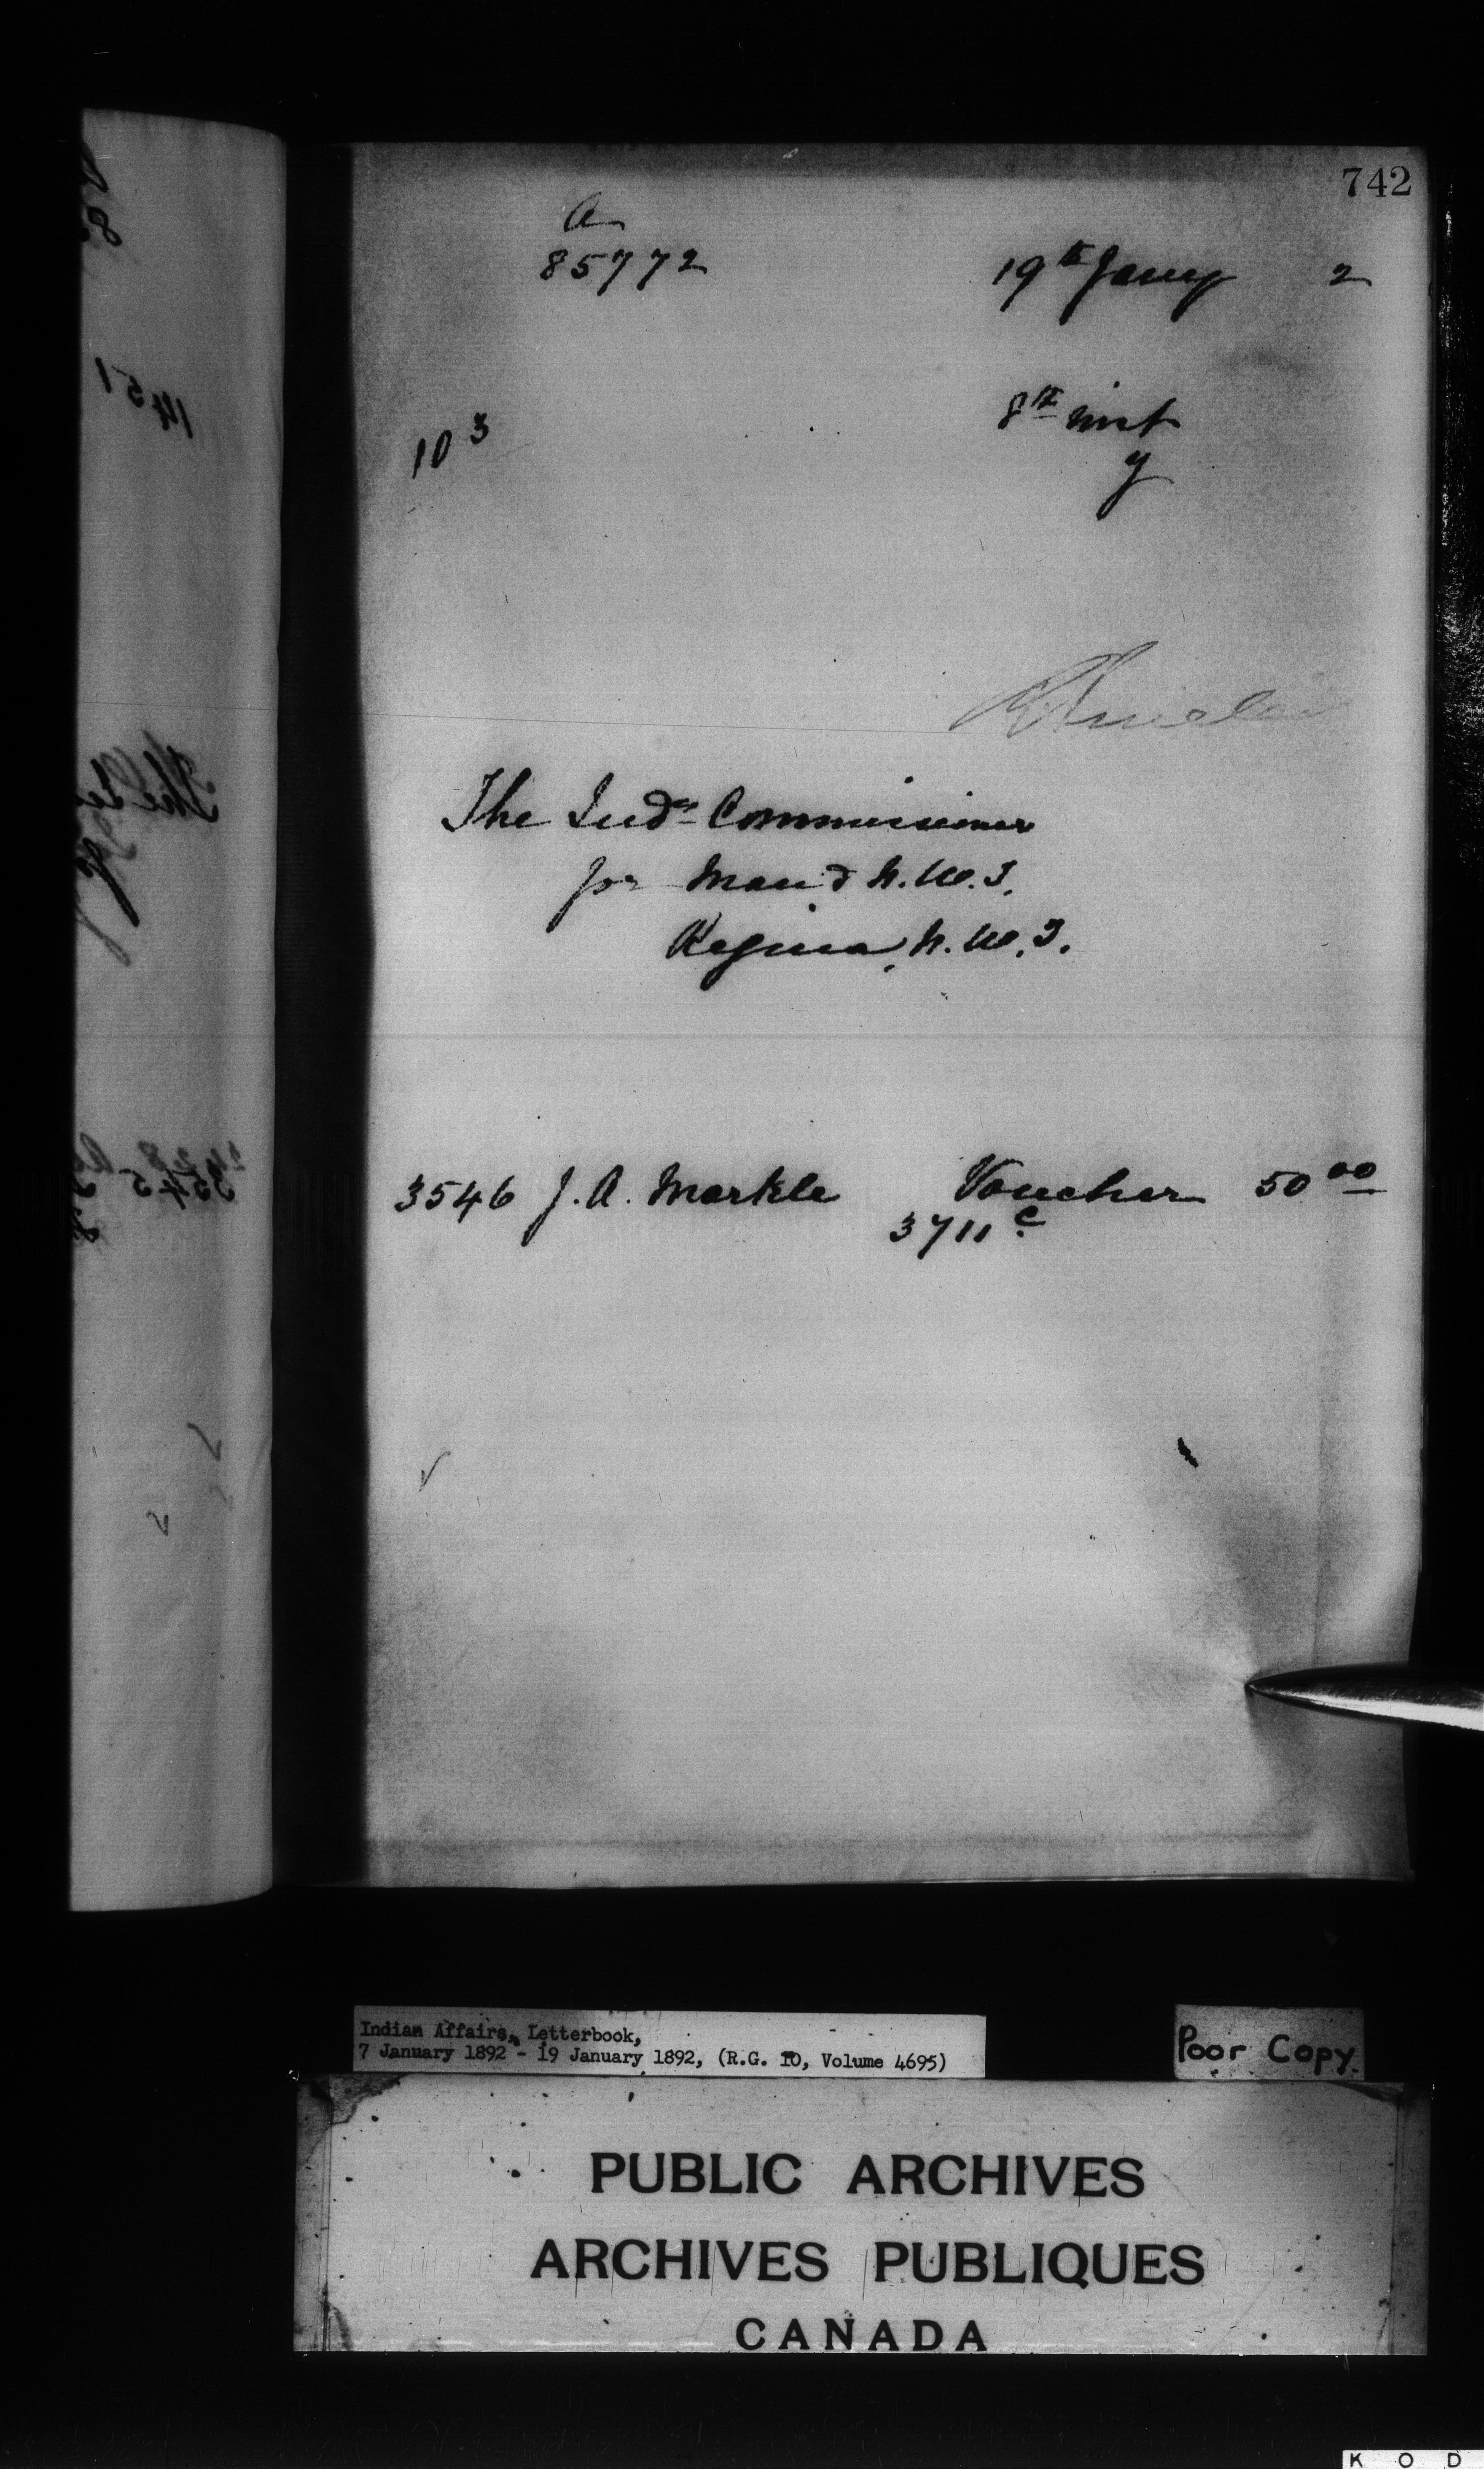 742
a
85772 19th Jany 2
8th inst
10 3
y
The Indn Commissioner
for Man & N.W.T.
Regina, N.W.T.
3546 J. A. Markle Voucher 50 00
3711 c
Indian Affairs, Letterbook,
7 January 1892 - 19 January 1892, (R.G. 10, Volume 4695)
Poor Copy.
PUBLIC ARCHIVES
ARCHIVES PUBLIQUES
CANADA
K O D